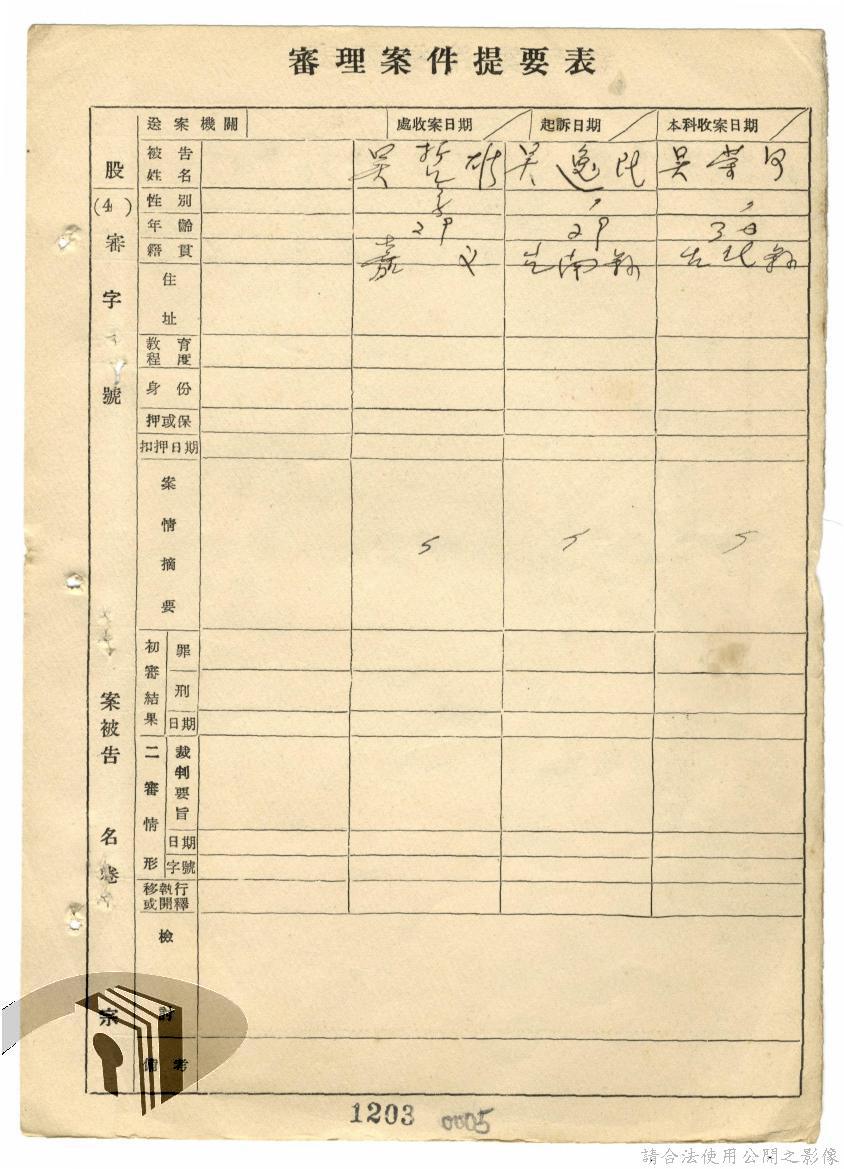 審理案件提要表
送案機關 處收案日期 起訴日期 本科收案日期
被告姓名 吳哲雄 吳逸民 吳崇
性別 男 〃 〃
年齡 24 24 30
籍貫 嘉义 台南縣 台北縣
住址
教育程度
身份
押或保
扣押日期
案情摘要
初審結果 罪
刑
日期
二審情形 裁判要旨
日期
字號
移執行或開釋
檢討
備考
股(4)審字 號
案被告 名卷 宗
1203 0005
請合法使用公開之影像